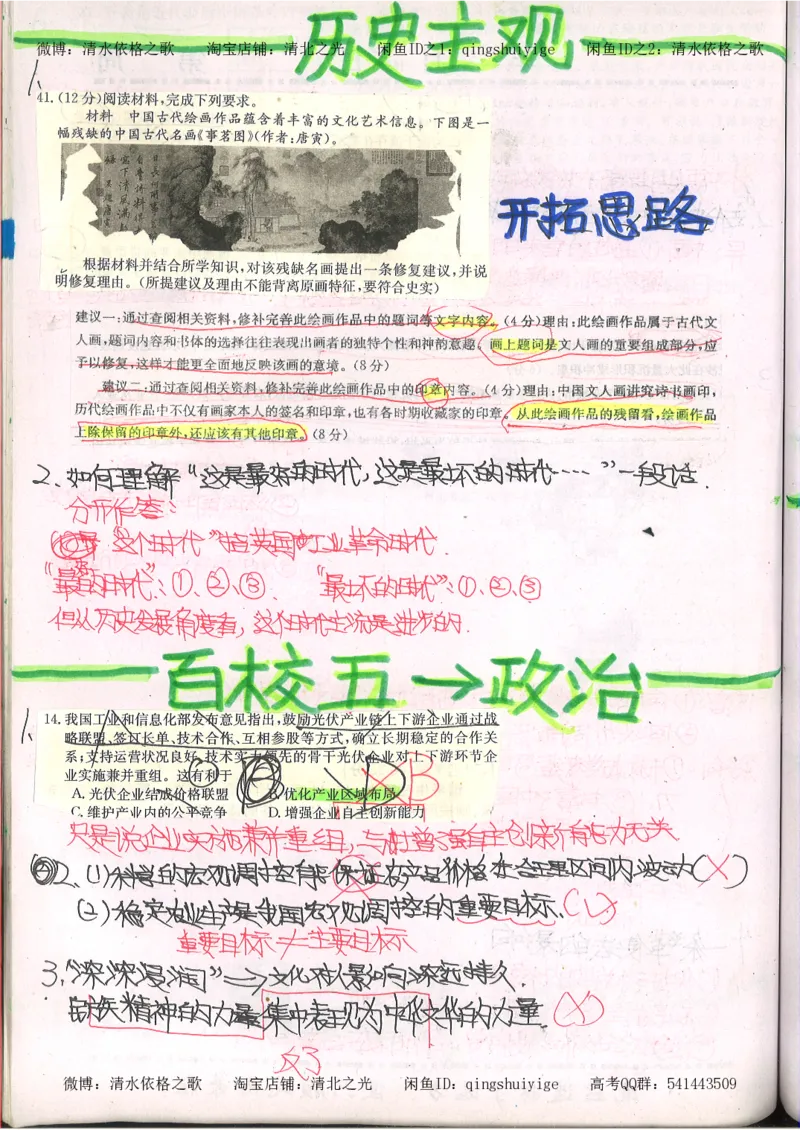 历史主观
微博：清水依格之歌 淘宝店铺：清北之光 闲鱼ID之1：qingshuiyige 闲鱼ID之2：清水依格之歌
1、
41.(12分)阅读材料,完成下列要求。
材料 中国古代绘画作品蕴含着丰富的文化艺术信息。下图是一
幅残缺的中国古代名画《事茗图》(作者:唐寅)。
开拓思路
根据材料并结合所学知识,对该残缺名画提出一条修复建议,并说
明修复理由。(所提建议及理由不能背离原画特征,要符合史实)
建议一:通过查阅相关资料,修补完善此绘画作品中的题词等文字内容。(4分)理由:此绘画作品属于古代文
人画,题词内容和书体的选择往往表现出画者的独特个性和神韵意趣。画上题词是文人画的重要组成部分,应
予以修复,这样才能更全面地反映该画的意境。(8分)
建议二:通过查阅相关资料,修补完善此绘画作品中的印章内容。(4分)理由:中国文人画讲究诗书画印,
历代绘画作品中不仅有画家本人的签名和印章,也有各时期收藏家的印章。从此绘画作品的残留看,绘画作品
上除保留的印章外,还应该有其他印章。(8分)
2、如何理解“这是最好的时代,这是最坏的时代……”一段话.
分开作答:
“这个时代”指英国工业革命时代.
“最好的时代”:①、②、③. “最坏的时代”:①、②、③
但从历史发展角度看,这个时代主流是进步的.
百校五→政治
1、
14.我国工业和信息化部发布意见指出,鼓励光伏产业链上下游企业通过战
略联盟、签订长单、技术合作、互相参股等方式,确立长期稳定的合作关
系;支持运营状况良好、技术实力领先的骨干光伏企业对上下游环节企
业实施兼并重组。这有利于
A.光伏企业结成价格联盟 B.优化产业区域布局
C.维护产业内的公平竞争 D.增强企业自主创新能力
只是说企业实施兼并重组,与增强自主创新能力无关
2、(1)科学的宏观调控能保证农产品价格在合理区间内波动(×)
(2)稳定物价是我国宏观调控的重要目标.(√)
重要目标≠主要目标
3、“深深浸润”→文化对人影响深远持久.
民族精神的力量集中表现为中华文化的力量.(×)
反了
微博：清水依格之歌 淘宝店铺：清北之光 闲鱼ID：qingshuiyige 高考QQ群：541443509